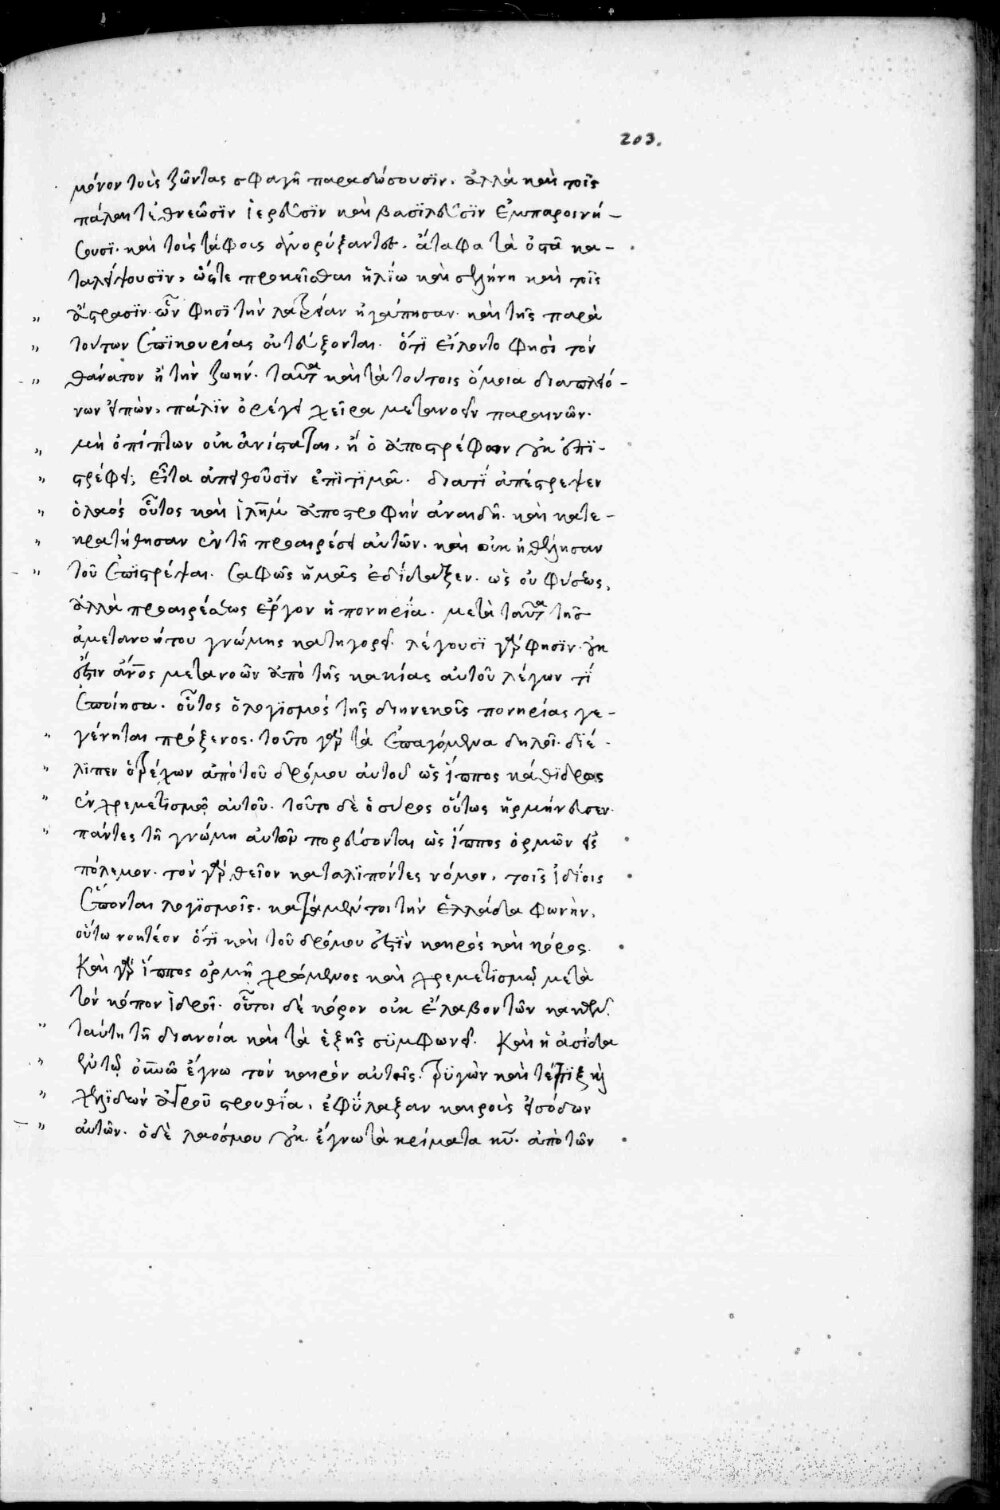 203.
μόνον τοὺς ζῶντας σφαγῆ παραδώσουσϊν. ἀλλὰ καὶ τοῖς
πάλαι τεθνεῶσϊν ἱερεῦσϊν καὶ βασϊλεῦσϊν ἐμπαροινή-
σουσϊ. καὶ τοὺς τάφους ἀνορύξαντες. ἄταφα τὰ ὀστᾶ κα-
ταλείψουσϊν, ὥστε προκεῖσθαι ἡλίω καὶ σελήνη καὶ τοῖς
" ἄστρασϊν. ὧν φησῒ τὴν λατρείαν ἠγάπησαν. καὶ τῆς παρὰ
" τούτων ἐπϊκουρίας οὐ τεύξονται. ὅτϊ εἵλοντο φησὶ τὸν
" θάνατον ἢ τὴν ζωήν. ταῦτα καὶ τὰ τούτοις ὅμοια διαπλεό-
νων εἰπὼν, πάλϊν ὀρέγει χεῖρα μετανοεῖν παραινῶν.
" μὴ ὁ πίπτων οὐκ ἀνίσταται. ἢ ὁ ἀποστρέφων οὐκ ἐπϊ-
" στρέφει; εἶτα ἀπειθοῦσϊν ἐπϊτϊμᾶ. διατΐ ἀπέστρεψεν
" ὁ λαός οὗτος καὶ ἱλημ ἀποστροφὴν ἀναιδῆ. καὶ κατε-
" κρατήθησαν ἐν τῆ προαιρέσει αὐτῶν. καὶ οὐκ ἠθέλησαν
" τοῦ ἐπϊστρέψαι. σαφῶς ἡμᾶς ἐδίδαξεν. ὡς οὐ φύσεως,
ἀλλὰ προαιρέσεως ἔργον ἡ πονηρΐα. μετὰ ταῦτα τῆς
ἀμετανοήτου γνώμης κατηγορεῖ. λέγουσϊ γὰρ φησϊν. οὐκ
ἔστιν ἄνος μετανοῶν ἀπὸ τῆς κακίας αὐτοῦ λέγων τΐ
ἐποίησα. οὗτος ὁ λογϊσμός τῆς διηνεκοῦς πονηρίας γε-
" γένηται πρόξενος. τοῦτο γὰρ τὰ ἐπαγόμενα δηλοῖ. διέ-
" λϊπεν ὁ τρέχων ἀπὸ τοῦ δρόμου αὐτοῦ ὡς ἵππος κάθϊδρος
" ἐν χρεμετισμῷ αὐτοῦ. τοῦτο δὲ ὁ σύρος οὕτως ἡρμήνευσεν.
" πάντες τῆ γνώμη αὐτῶν πορεύσονται ὡς ἵππος ὁρμῶν εἰς
πόλεμον. τὸν γὰρ θεῖον καταλϊπόντες νόμον. τοῖς ἰδίοις
ἕπονται λογϊσμοῖς. κατὰ μέντοι τὴν ἑλλάδα φωνὴν,
οὕτω νοητέον ὅτϊ καὶ τοῦ δρόμου ἐστὶν καιρός καὶ κόρος.
Καὶ γὰρ ἵππος ὁρμῆ χρώμενος καὶ χρεμετϊσμῷ μετὰ
τὸν κόπον ἱδροῖ. οὗτοι δὲ κόρον οὐκ ἔλαβον τῶν κακῶν.
" ταύτη τῆ διανοία καὶ τὰ ἑξῆς σϋμφωνεῖ. Καὶ ἡ ἀσίδα
" ἐν τῷ οὐνῶ ἔγνω τὸν καιρὸν αὐτῆς. τρϋγὼν καὶ τέττϊξ καὶ
" χελϊδὼν ἀγροῦ στρουθΐα. ἐφΰλαξαν καιροὺς εἰσόδων
" αὐτῶν. ὁ δὲ λαόσμου οὐκ ἔγνω τὰ κρίματα κυ. ἀπὸ τῶν